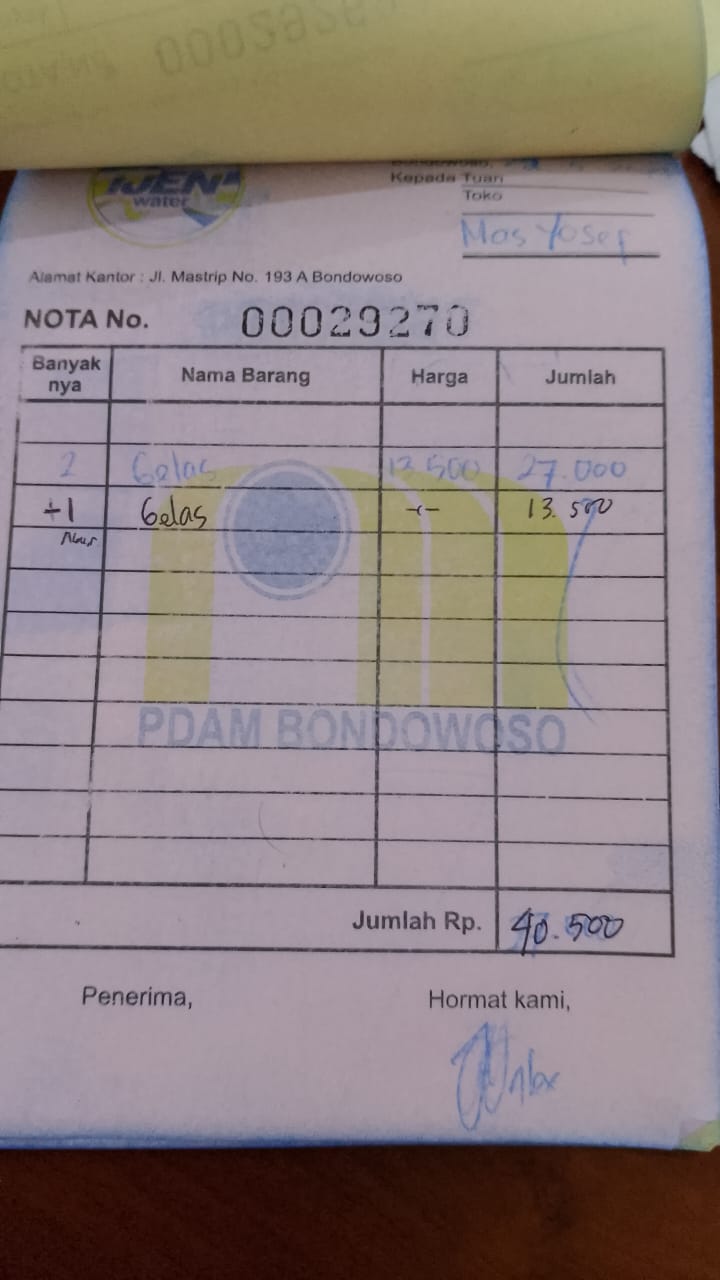 00029269
IJEN
water
Kepada Tuan
Toko
Mas Yosef
Alamat Kantor : Jl. Mastrip No. 193 A Bondowoso
NOTA No. 00029270
Banyak nya Nama Barang Harga Jumlah
2 Gelas 13.500 27.000
+1 Gelas -〃- 13.500
PDAM BONDOWOSO
Jumlah Rp. 40.500
Penerima, Hormat kami,